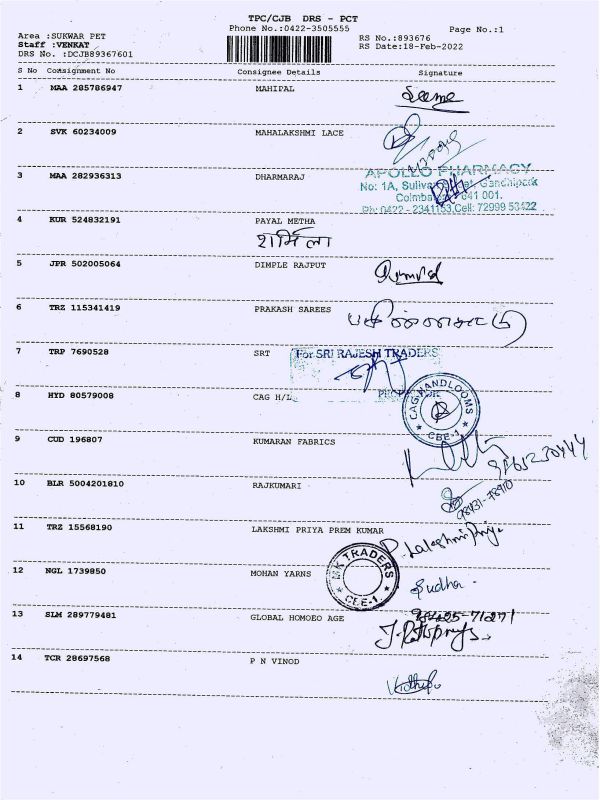 TPC/CJB DRS - PCT
Phone No.:0422-3505555
Page No.:1
Area :SUKWAR PET
RS No.:893676
Staff :VENKAT
RS Date:18-Feb-2022
DRS No. :DCJB89367601
S No Consignment No Consignee Details Signature
1 MAA 285786947 MAHIPAL
2 SVK 60234009 MAHALAKSHMI LACE
3 MAA 282936313 DHARMARAJ
APOLLO PHARMACY
No: 1A, Gandhipark
641 001.
Ph: 0422 - 2341153 Cell: 72999 53422
4 KUR 524832191 PAYAL METHA
शर्मिला
5 JPR 502005064 DIMPLE RAJPUT
6 TRZ 115341419 PRAKASH SAREES
7 TRP 7690528 SRT
For SRI RAJESH TRADERS
8 HYD 80579008 CAG H/L
CAG HANDLOOMS
CBE-1
9 CUD 196807 KUMARAN FABRICS
10 BLR 5004201810 RAJKUMARI
98431-78910
11 TRZ 15568190 LAKSHMI PRIYA PREM KUMAR
P. Lakshmi Priya
12 NGL 1739850 MOHAN YARNS
MK TRADERS
CBE-1
Sudha
13 SLM 289779481 GLOBAL HOMOEO AGE
14 TCR 28697568 P N VINOD